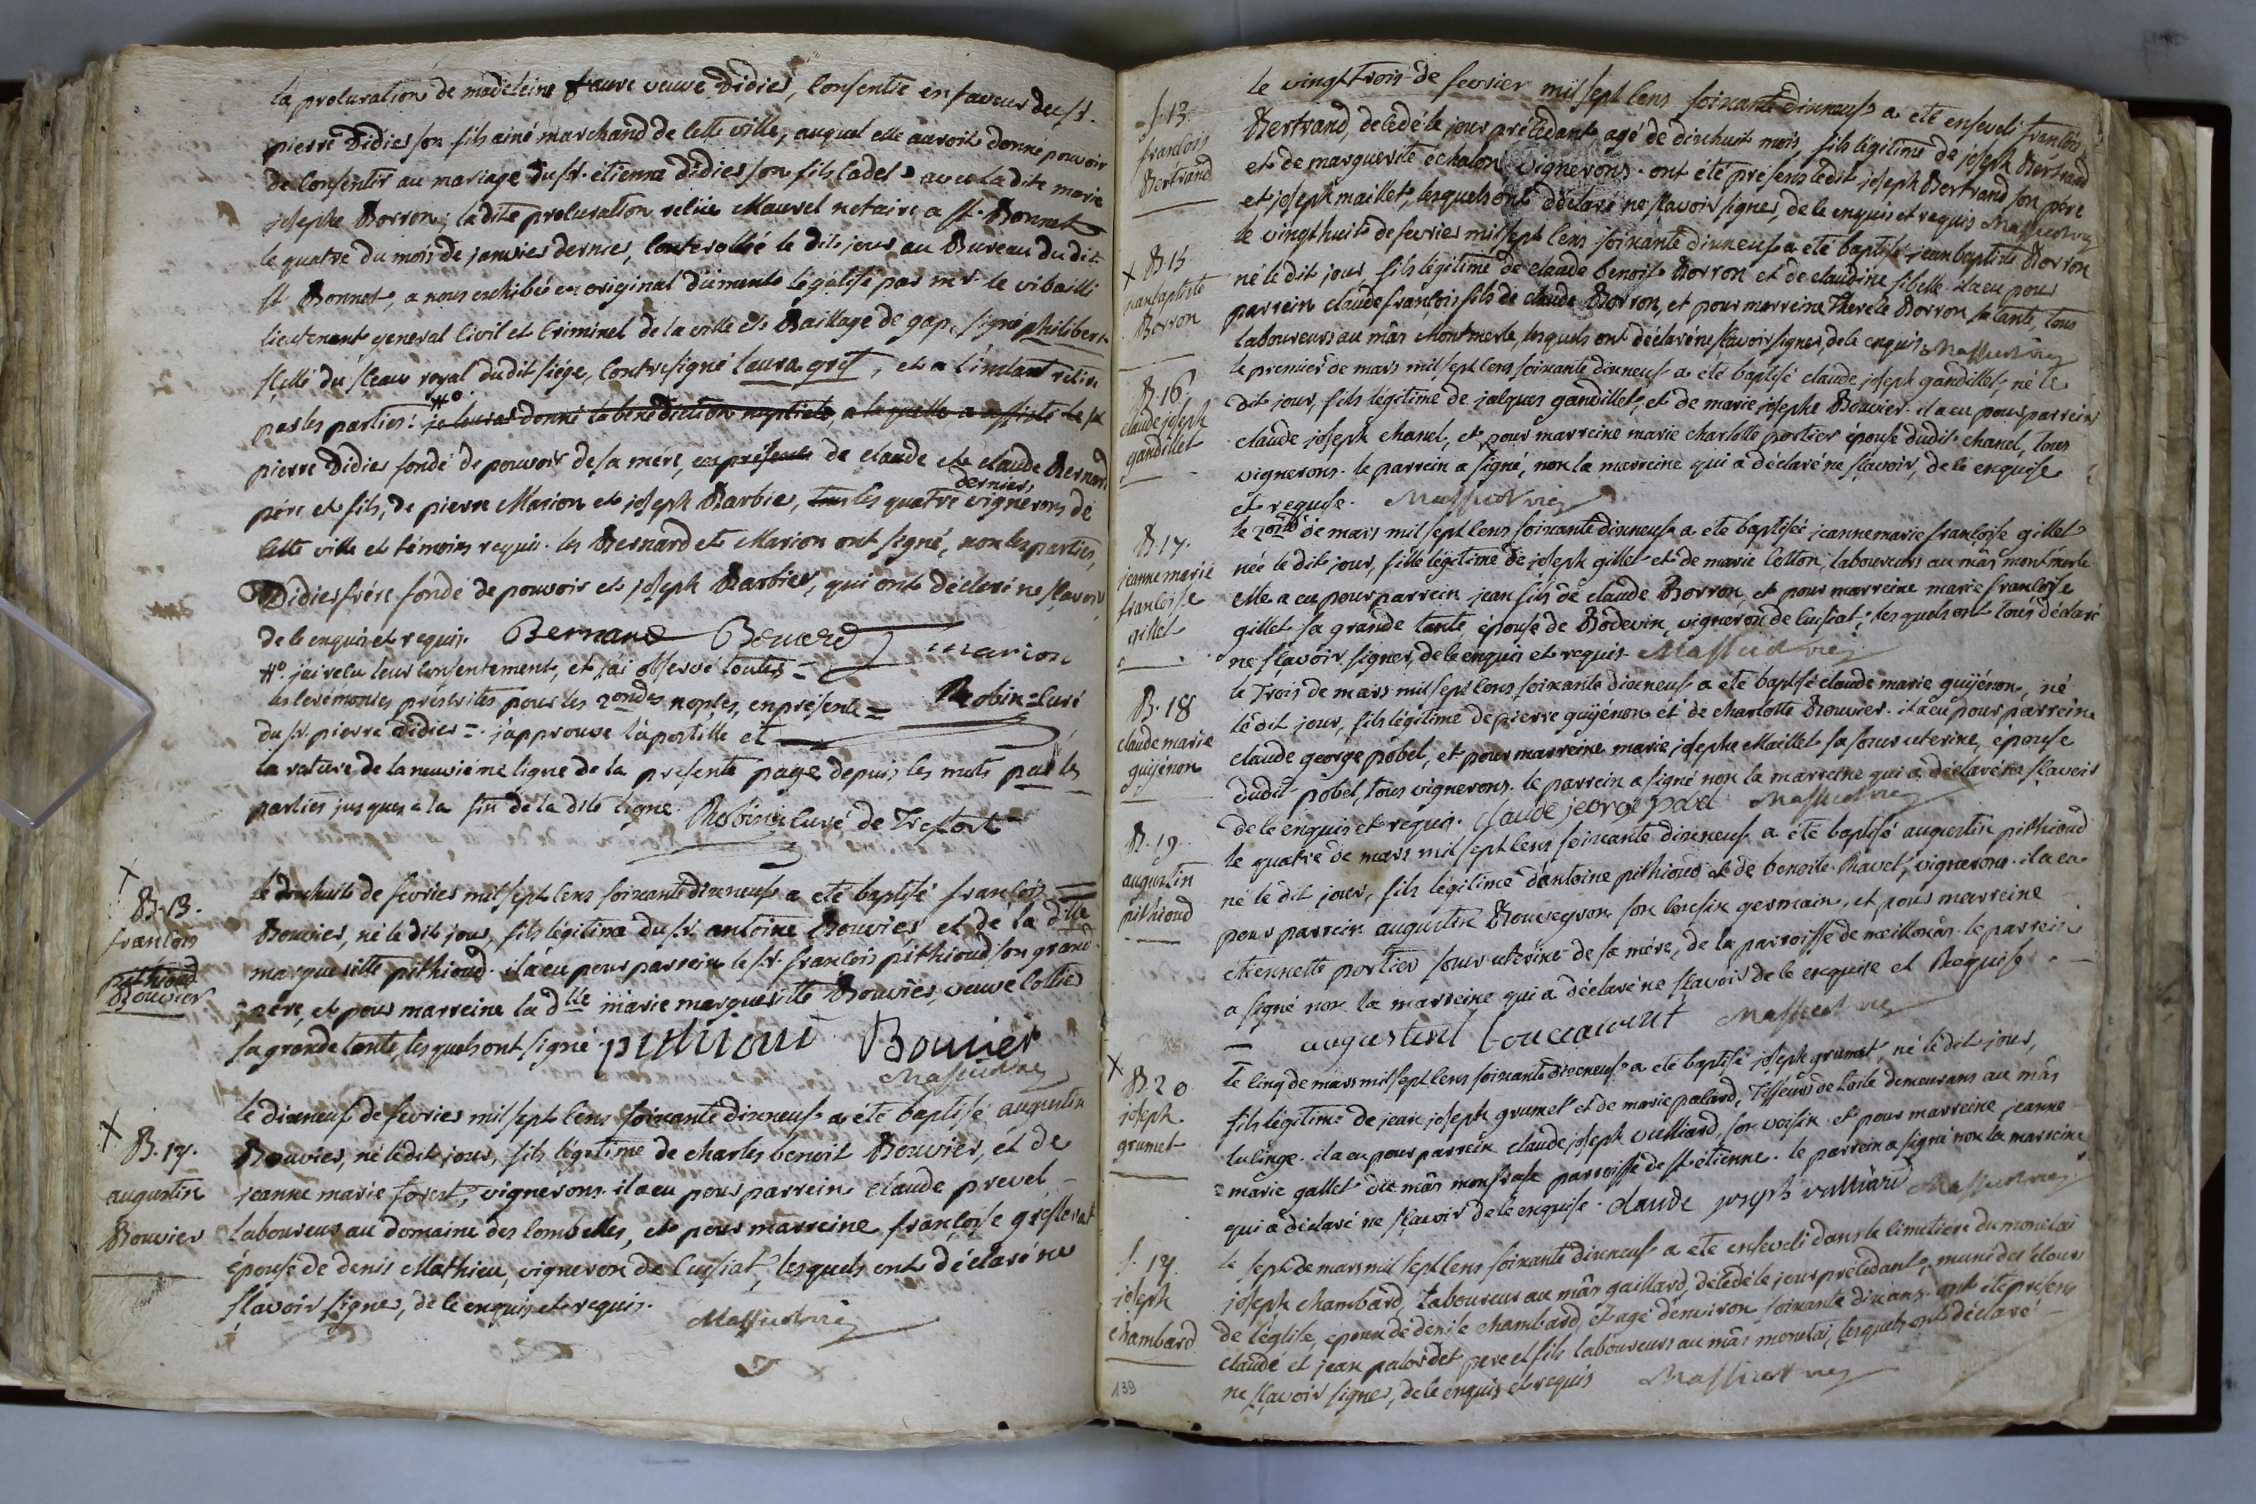 la procuration de madeleine faure veuve Didier, consentie en faveur du sr.
pierre Didier son fils ainé marchand de cette ville, auquel elle auroit donné pouvoir
de consentir au mariage du sr. étienne didier son fils cadet avec la dite marie
josephe Borron; la dite procuration reçüe Maurel notaire a st. Bonnet
le quatre du mois de janvier dernier, controllée le dit jour au Bureau du dit
st Bonnet, a nous exhibée en original düement légalisé par mr. le vibailli
lieutenant general civil et criminel de la ville et Baillage de gap, signé philibert
scellé du sceau royal du dit siége, contresigné laura gref, et a l'instant retiré
par les parties: #° je leur ai donné la bénédiction nuptiale, a laquelle a assisté le sr.
pierre Didier fondé de pouvoir de sa mére, en présence de claude et claude Bernard
pére et fils, de pierre Marion et joseph Barbier, tous les quatre derniers vignerons de
cette ville et témoins requis. les Bernard et Marion ont signé, non les parties,
Didier frére fondé de pouvoir et joseph Barbier, qui ont déclaré ne sçavoir
de ce enquis et requis. Bernard Bernard marion
#° j'ai reçu leur consentement, et j'ai observé toutes =
les cérémonies préscrites pour les 2ondes noples, en présence = Robin = curé
du sr. pierre Didier =. j'approuve l'apostille et
la rature de la neuviéme ligne de la presente page depuis les mots par les
parties jusques a la fin de la dite ligne. Robin curé de Treffort
B. 13.
francois
pithioud
Bouvier
le dixhuit de février mil sept cens soixante dixneuf a été baptisé francois
Bouvier, né le dit jour, fils légitime du sr. antoine Bouvier et de la dlle
marguerite pithioud. il a eu pour parrein le sr. francois pithioud son grand
pére, et pour marreine la dlle marie marguerite Bouvier, veuve cottier
sa grande tante, lesquels ont signé. pithioud Bouvier
Massicot vic
B. 14.
augustin
Bouvier
le dixneuf de février mil sept cens soixante dixneuf a été baptisé augustin
Bouvier, né le dit jour, fils légitime de charles benoit Bouvier, et de
jeanne marie forest, vignerons. il a eu pour parrein claude prevel
laboureur au domaine des combettes, et pour marreine françoise
épouse de denis Mathieu, vigneron de Cuisiat, lesquels ont déclaré ne
sçavoir signer, de ce enquis et requis.
Massicot vic
S. 13.
francois
Bertrand
le vingt trois de fevrier mil sept cens soixante dixneuf a été enseveli francois
Bertrand, decedé le jour précédant, agé de dixhuit mois, fils légitime de joseph Bertrand
et de marguerite échalon, vignerons. ont été présens le dit joseph Bertrand son pére
et joseph maillet, lesquels ont déclaré ne sçavoir signer, de ce enquis et requis Massicot vic
B. 15
jean baptiste
Borron
le vingt huit de fevrier mil sept cens soixante dixneuf a été baptisé jean baptiste Borron
né le dit jour, fils légitime de claude benoit Borron et de claudine sibelle. il a eu pour
parrein claude françois fils de claude Borron, et pour marreine Therese Borron sa tante, tous
laboureurs au mâs Montmerle, lesquels ont déclaré ne sçavoir signer, de ce enquis. Massicot vic
B. 16
claude joseph
gandillet
le premier de mars mil sept cens soixante dixneuf a été baptisé claude joseph gandillet, né le
dit jour, fils légitime de jacques gandillet, et de marie josephe Bouvier. il a eu pour parrein
claude joseph chanel, et pour marreine marie charlotte portier épouse dudit chanel, tous
vignerons. le parrein a signé, non la marreine qui a déclaré ne sçavoir, de ce enquise
et requise. Massicot vic
B. 17.
jeanne marie
francoise
gillet
le 2ond de mars mil sept cens soixante dixneuf a été baptisée jeanne marie françoise gillet
née le dit jour, fille légitime de joseph gillet et de marie cotton, laboureurs au mâs montmerle
elle a eu pour parrein jean fils de claude Borron, et pour marreine marie francoise
gillet sa grande tante, épouse de Bodevin, vigneron de Cuisiat; lesquels ont tous déclaré
ne sçavoir signer, de ce enquis et requis Massicot vic
B. 18
claude marie
guyénon
le Trois de mars mil sept cens soixante dixneuf a été baptisé claude marie guyénon, né
le dit jour, fils légitime de pierre guyénon et de charlotte Bouvier. il a eu pour parrein
claude george pobel, et pour marreine marie josephe Maillet sa soeur uterine, épouse
dudit pobel, tous vignerons. le parrein a signé non la marreine qui a déclaré ne sçavoir
de ce enquis et requis. claude jeorge pobel Massicot vic
B. 19.
augustin
pithioud
le quatre de mars mil sept cens soixante dixneuf a été baptisé augustin pithioud
né le dit jour, fils légitime d'antoine pithioud et de benoite Ravet, vignerons. il a eu
pour parrein augustin son cousin germain, et pour marreine
étiennette portier soeur utérine de sa mére, de la parroisse de meillonas. le parrein
a signé non la marreine qui a déclaré ne sçavoir de ce enquise et Requise.
augustin Massicot vic
B. 20
joseph
grumet
le cinq de mars mil sept cens soixante dixneuf a été baptisé joseph grumet, né le dit jour,
fils légitime de jean joseph grumet et de marie palard, Tisseurs de toile demeurans au mâs
lulinge. il a eu pour parrein claude joseph vulliard, son voisin et pour marreine jeanne
marie gallet du mâs parroisse de st. étienne. le parrein a signé non la marreine
qui a déclaré ne sçavoir de ce enquise. claude joseph vulliard Massicot vic
S. 14.
joseph
chambard
le sept de mars mil sept cens soixante dixneuf a été enseveli dans le cimetière du monetai
joseph chambard, laboureur au mâs gaillard, décédé le jour précédant, muni des secours
de l'église, époux de denise chambard, et agé d'environ soixante dix ans. ont été présens
claude et jean palordet pere et fils laboureurs au mâs monetai, lesquels ont déclaré
ne sçavoir signer, de ce enquis et requis Massicot vic
139